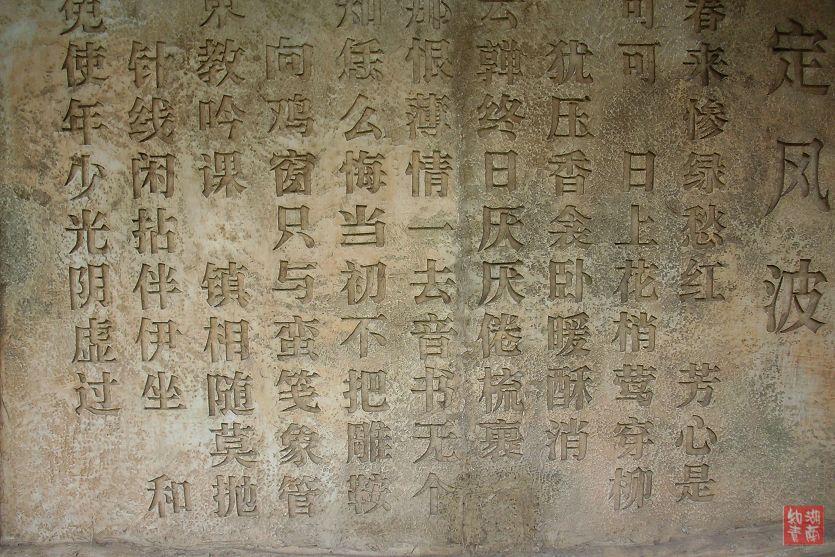 定风波
春来惨绿愁红 芳心是
可可 日上花梢莺穿柳
犹压香衾卧暖酥消
云终日厌厌倦梳裹
那恨薄情一去音书无个
知恁么悔当初不把雕鞍
向鸡窗只与蛮笺象管
束教吟课 镇相随莫抛
针线闲拈伴伊坐 和
免使年少光阴虚过
湖南